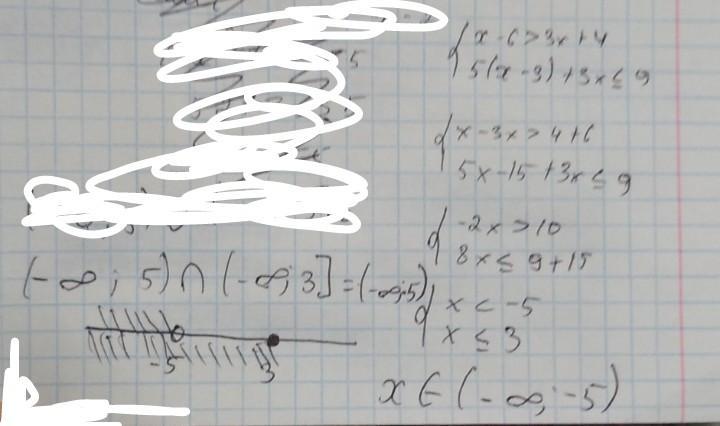 x - 6 > 3x + 4
5(x - 3) + 3x ≤ 9
x - 3x > 4 + 6
5x - 15 + 3x ≤ 9
-2x > 10
8x ≤ 9 + 15
x < -5
x ≤ 3
(-∞; 5) ∩ (-∞; 3] = (-∞; 5)
-5
3
x ∈ (-∞; -5)